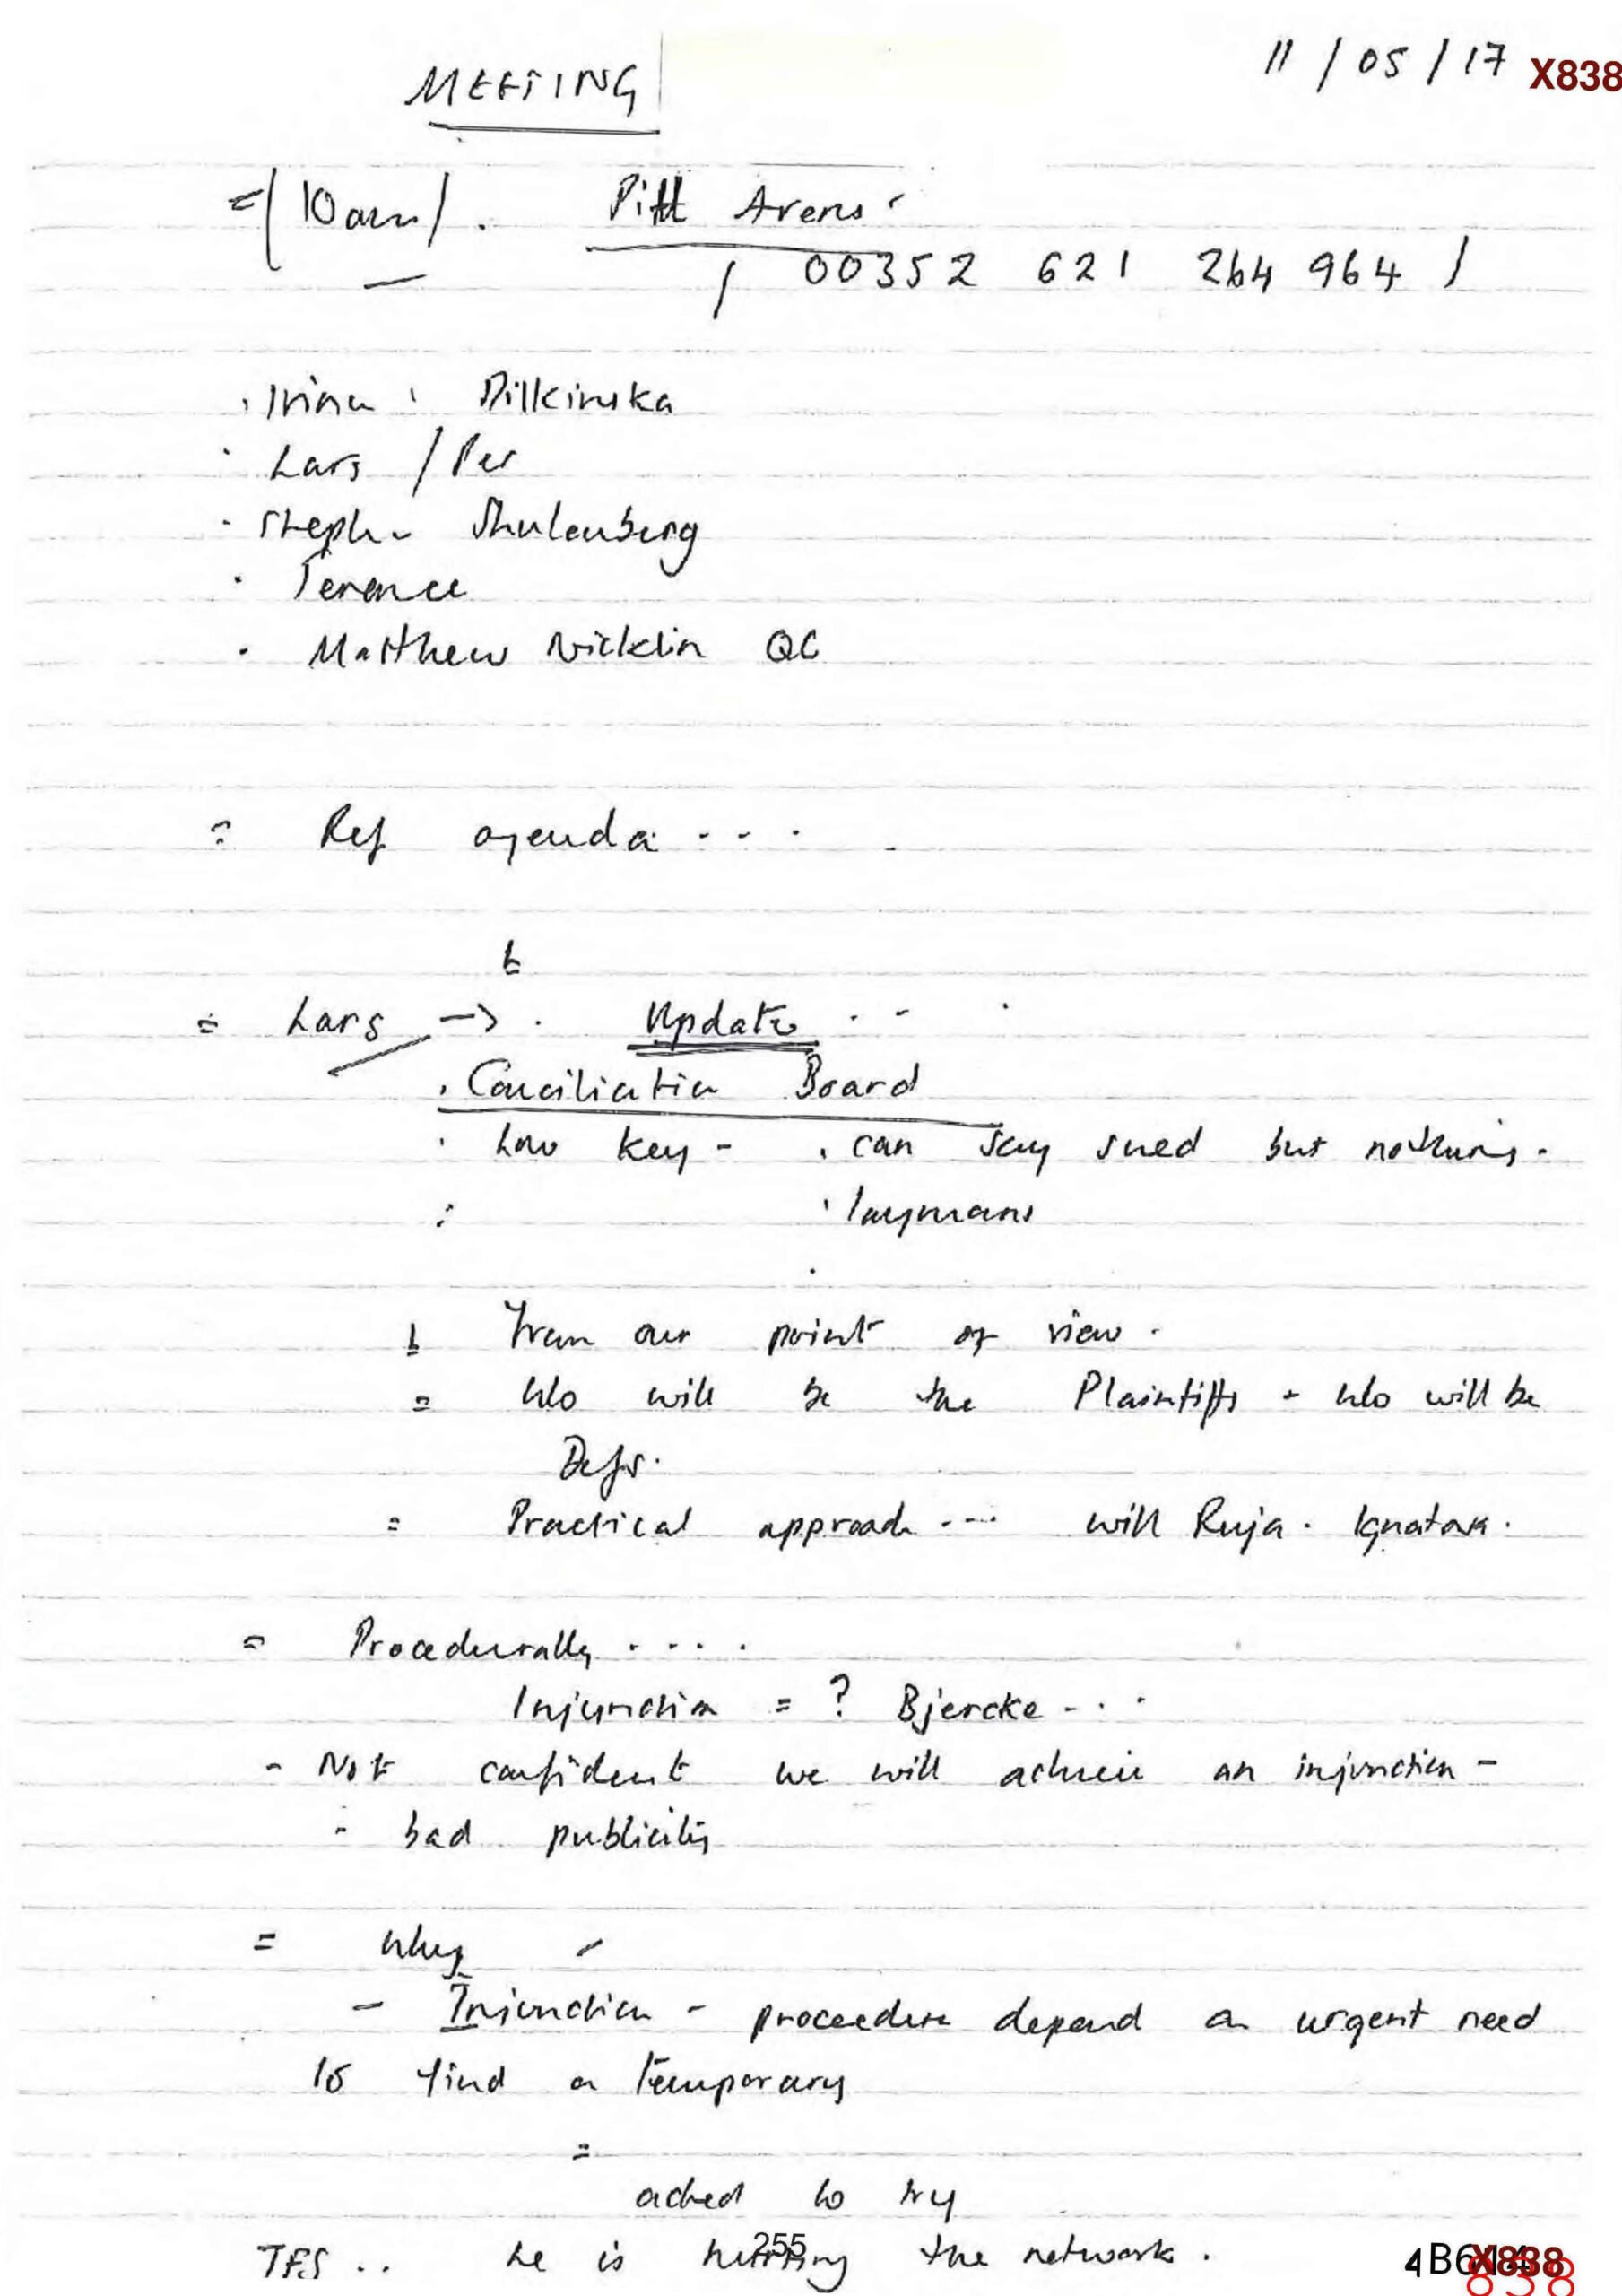 MEETING
11/05/17 X838
=/10am/. Pitt Arens
/ 00352 621 264 964 /
· Irina : Dilkinska
· Lars / Per
· Shulenberg
· Terence
· Matthew Nicklin QC
= Ref agenda ....
= Lars → . Update . - .
. Conciliation Board
. Low key - . can say sued but nothing.
: ' laymans
from our point of view .
= Who will be the Plaintiffs + who will be
Defs.
= Practical approach .... will Ruja. Ignatova.
= Procedurally ....
Injunction = ? Bjercke - . .
- Not confident we will achieve an injunction -
- bad publicity
= Why -
- Injunction - procedure depend on urgent need
to find a temporary
=
to try
TFS .. he is hurting the network .
255
X838